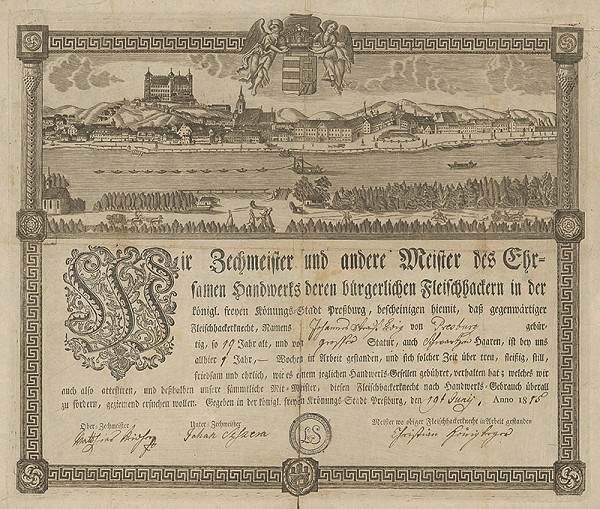 Wir Zechmeister und andere Meister des Ehr-
samen Handwerks deren bürgerlichen Fleischhackern in der
königl. freyen Krönungs-Stadt Preßburg, bescheinigen hiemit, daß gegenwärtiger
Fleischhackerknecht, Namens Johannes König von Presburg gebür-
tig, so 19 Jahr alt, und von großer Statur, auch schwarzen Haaren, ist bey uns
allhier 1 Jahr, — Wochen in Arbeit gestanden, und sich solcher Zeit über treu, fleißig, still,
friedsam und ehrlich, wie es einem jeglichen Handwerks-Gesellen gebühret, verhalten hat; welches wir
auch also attestiren, und deßhalben unsere sämmtliche Mit-Meister, diesen Fleischhackerknecht nach Handwerks-Gebrauch überall
zu fördern, geziemend ersuchen wollen. Gegeben in der königl. freyen Krönungs-Stadt Preßburg, den 19t Junij, Anno 1815
Ober-Zechmeister Unter-Zechmeister LS Meister wo obiger Fleischhackerknecht in Arbeit gestanden
Johan Christian